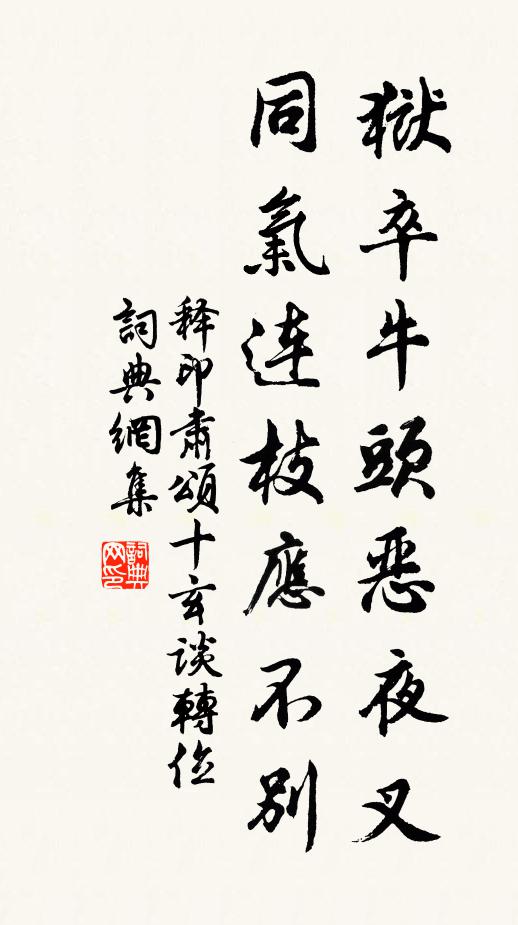 獄卒牛頭恶夜叉
同氣連枝應不别
释印肅颂十玄談轉位
詞典網集
詞典网印